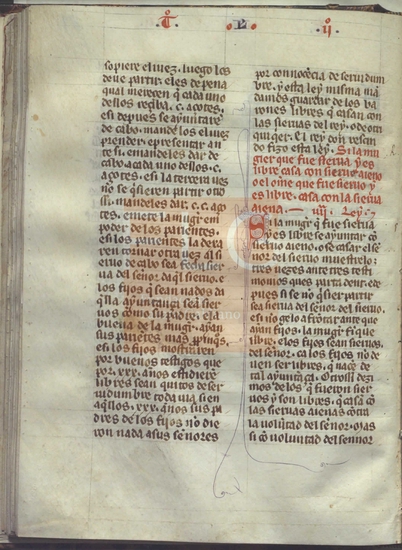 T. II
sopiere el iuez. luego les
deue partir. e les de pena
qual merecen que cada uno
dellos reciba .c. açotes.
e si depues se ayuntaren
de cabo. mande los el iuez
prender. e presentar an
te si. e mande les dar de
cabo. a cada uno dellos .c. a
çotes. e si la tercera uez
no se quieren partir otro
si. mandeles dar .c. c. aço
tes. e mete la mugier en
poder de los parientes.
e si los parientes la dexa
ren tornar otra uez al si
eruo de cabo sea fecha sier
ua del sennor daquel sieruo. e
los fijos que sean nados da
quella ayuntança sea sier
uos como su padre. e la
buena de la mugier. ayan
sus parientes mas propinquos.
e si los fijos mostraren
por buenos testigos que
por .xxx. años estidiere
libres sean quitos de ser
uidumbre toda uia si en
aquellos .xxx. años sus pa
dres de los fijos no die
ron nada a sus señores
por connocencia de seruidum
bre. y esta ley misma man
damos guardar de los ba
rones libres que casan con
las sieruas del rey. o de otri
qui quier. El rey don rescin
do fizo esta ley. Si la mu
gier que fue sierua y es
libre casa con sieruo aieno
e el ome que fue sieruo y
es libre. casa con la sierua
aiena. — iiii. Ley.
Si la mugier que fue sierua
y es libre se ayuntar con
sieruo aieno. o se casar el se
ñor del sieruo muestrelo:
tres uezes ante tres testi
monios que se parta dende. e de
pues si se no quisier partir
sea sierua del señor del sieruo.
e si no gelo afrotar ante que
ayan fijos. la mugier finque
libre. e los fijos sean sieruos.
del señor. ca los fijos no de
uen ser libres. que nace de
tal ayuntança. Otrossi dezi
mos de los que fueron sier
uos y son libres. que casan con
las sieruas aienas contra
la uoluntad del señor. Mas
si con uoluntad del sennor